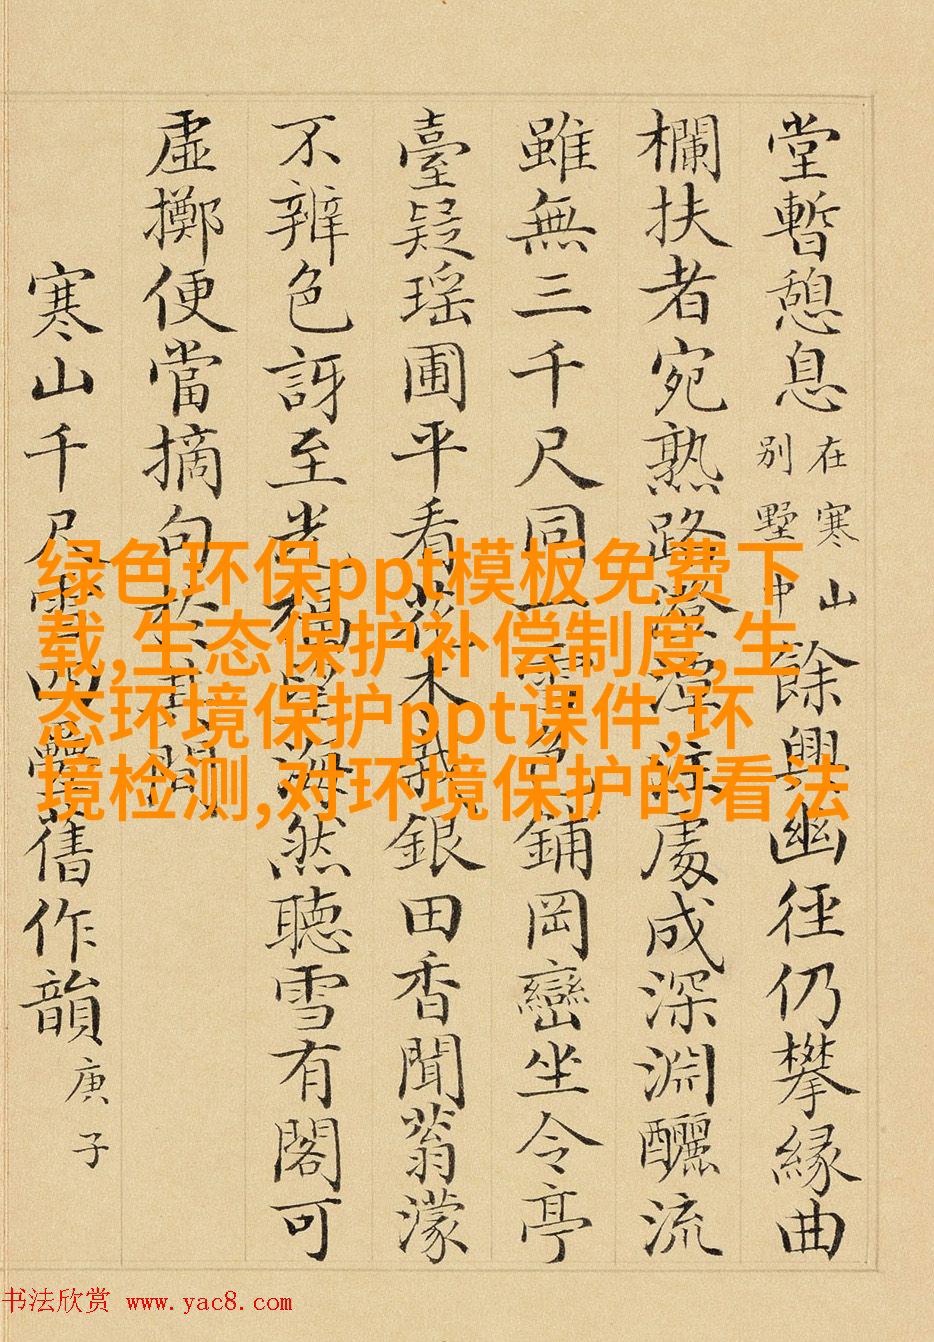 堂暫憩息在寒山別墅中餘興幽徑仍攀緣曲
欄扶者宛熟路澄潭注處成深淵釃流
雖無三千尺同一雪色鋪岡巒坐令亭
臺疑瑤圃平看花木飛銀田香聞蓊濛
不辨色訝至光福海然聽雪有閣可
虛擲便當摘句於其間
寒山千尺雪四疊舊作韻庚子
绿色环保ppt模板免费下
载,生态保护补偿制度,生
态环境保护ppt课件,环
境检测,对环境保护的看法
书法欣赏 www.yac8.com